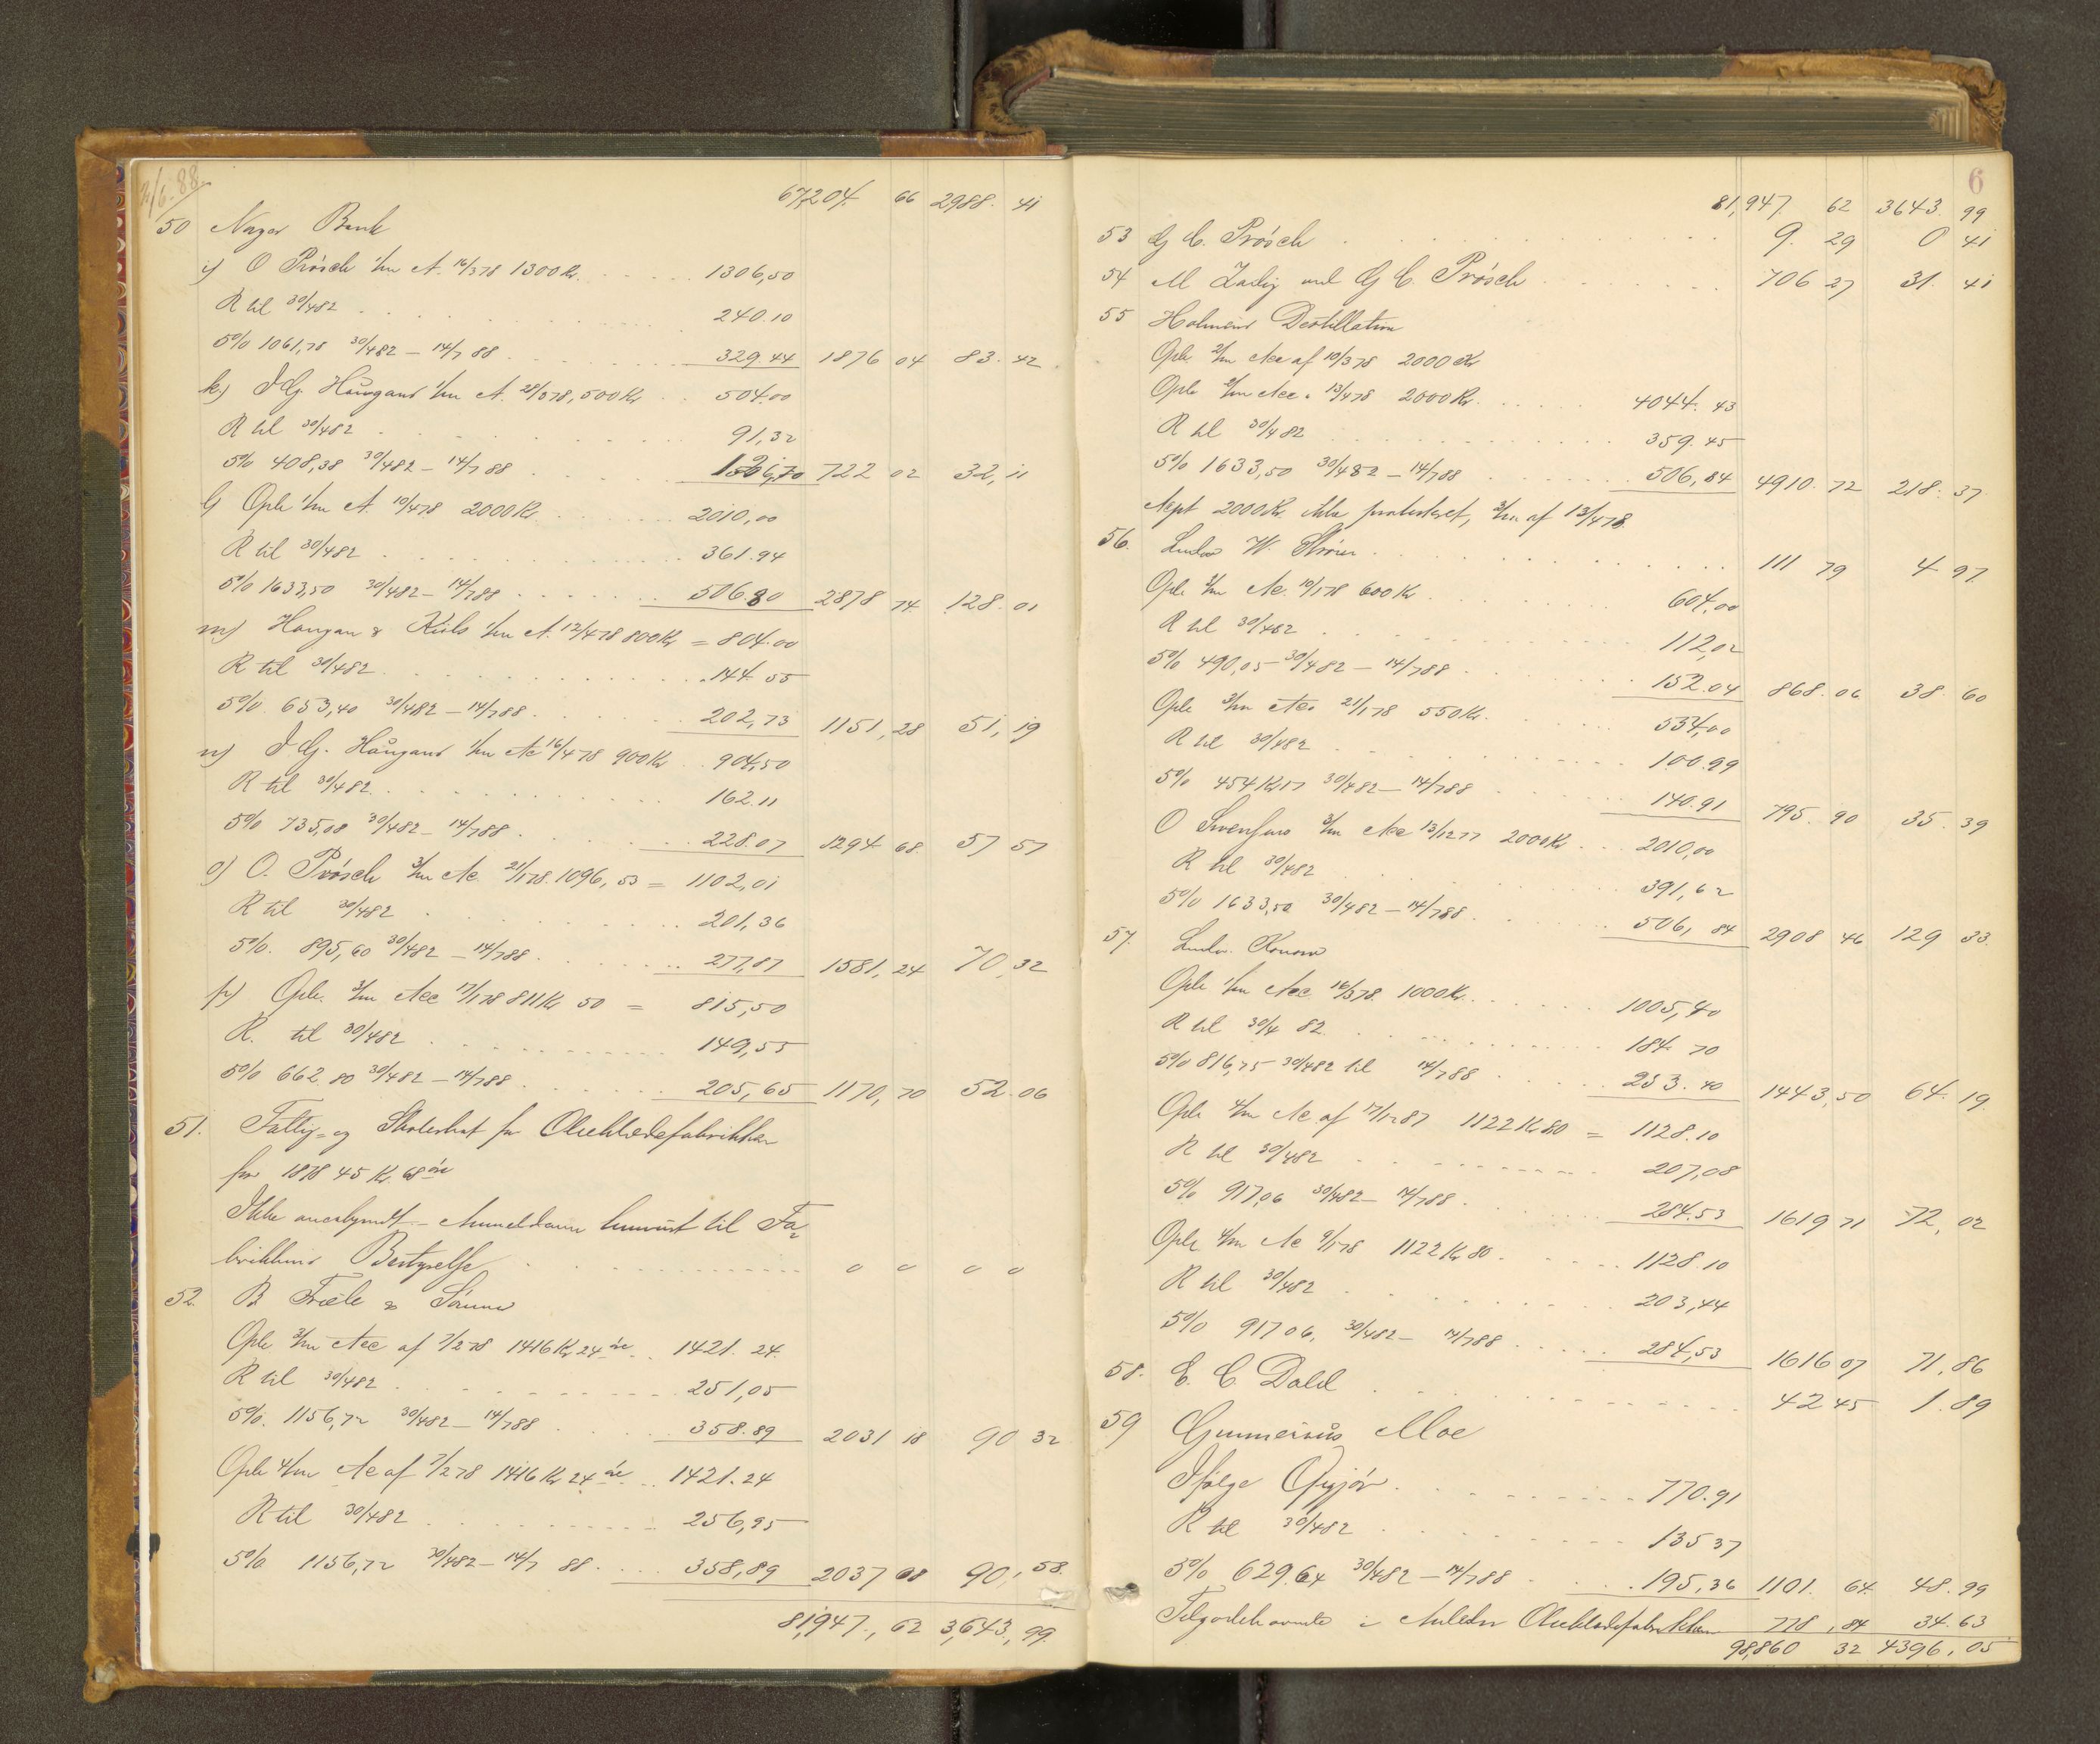 2/6.88.
67,204. 66 2988. 41
50 Norges Bank
i) O Prösch 1/m A. 16/3 78 1300 Kr. 1306,50
R til 30/4 82 240.10
5% 1061,78 30/4 82 – 14/7 88 329.44 1876 04 83.42
k.) J G. Haugans 1/m A. 28/3 78, 500 Kr 504.00
R til 30/4 82 91,32
5% 408,38 30/4 82 – 14/7 88 126,70 722 02 32,11
l) Ople 1/m A. 10/4 78 2000 Kr 2010,00
R til 30/4 82 361.94
5% 1633,50 30/4 82 – 14/7 88 506.80 2878 74 128.01
m) Haugan & Kiels 1/m A. 12/4 78 800 Kr = 804.00
R til 30/4 82 144.55
5%. 653,40 30/4 82 – 14/7 88 202,73 1151,28 51,19
n) J G. Haugans 1/m Ac 16/4 78 900 Kr 904,50
R til 30/4 82 162.11
5% 735,08 30/4 82 – 14/7 88 228.07 1294 68 57 57
o) O. Prösch 3/m Ac 21/1 78. 1096,53 = 1102,01
R til 30/4 82 201,36
5%. 895,60 30/4 82 – 14/7 88 277,87 1581,24 70,32
p) Ople. 3/m Acc 17/1 78 811 Kr 50 = 815,50
R. til 30/4 82 149,55
5% 662.80 30/4 82 – 14/7 88 205,65 1170,70 52.06
51. Fattig- og Skoleskat for Olieklædefabrikken
for 1878 45 Kr. 68 öre
Ikke anerkjendt – Anmelderen henvist til Fa-
brikkens Bestyrelse 0 0 0 0
52. B Friele & Sönner
Ople 3/m Acc af 7/2 78 1416 Kr 24 öre 1421.24.
R til 30/4 82 251,05
5%. 1156,72 30/4 82 – 14/7 88 358.89 2031 18 90 32
Ople 4/m Ac af 7/2 78 1416 Kr 24 öre 1421.24
R til 30/4 82 256,95
5% 1156,72 30/4 82 – 14/7 88 358,89 2037 08 90,58
81,947,62 3,643,99.
6
81,947. 62 3643. 99
53 G C. Prösch 9. 29 0 41
54 M Zadig ved G C. Prösch 706 27 31. 41
55 Holmens Destillation
Ople 2/m Acc af 10/3 78 2000 Kr
Ople 2/m Acc. 13/4 78 2000 Kr. 4044.43
R til 30/4 82 359.45
5% 1633,50 30/4 82 – 14/7 88 506,84 4910.72 218.37
Acpt 2000 Kr. ikke protesteret, 3/m af 13/4 78.
56. Ludv W. Ström 111 79 4 97
Ople 3/m Ac. 10/1 78 600 Kr 604,00
R til 30/4 82 112,02
5% 490,05 – 30/4 82 – 14/7 88 152.04 868.06 38.60
Ople 3/m Acc 21/1 78 550 Kr. 554,00
R til 30/4 82 100.99
5% 454 Kr 17 30/4 82 – 14/7 88 140.91 795.90 35.39
O Svensens 3/m Acc 13/12 77 2000 Kr 2010,00
R til 30/4 82 391,62
5% 1633,50 30/4 82 – 14/7 88 506,84 2908 46 129 33.
57. Ludv. Konow
Ople 1/m Acc 16/3 78. 1000 Kr. 1005,40
R til 30/4 82 184.70
5% 816,75 30/4 82 til 14/7 88 253.40 1443,50 64.19.
Ople 4/m Ac af 17/12 87 1122 Kr 80 = 1128.10
R til 30/4 82 207,08
5% 917,06 30/4 82 – 14/7 88 284.53 1619 71 72,02
Ople 4/m Ac 9/1 78 1122 Kr 80 1128.10
R til 30/4 82 203,44
5% 917 06. 30/4 82 – 14/7 88 284,53 1616 07 71,86
58. E. C Dahl 42 45 1.89
59 Gunnerius Moe
Ifölge Opgjör 770.91
R til 30/4 82 135 37
5% 629.64 30/4 82 – 14/7 88 195,36 1101. 64. 48.99
Tilgodehavende i Olieklædefabrikken 778,84 34.63
98,860 32 4396,05